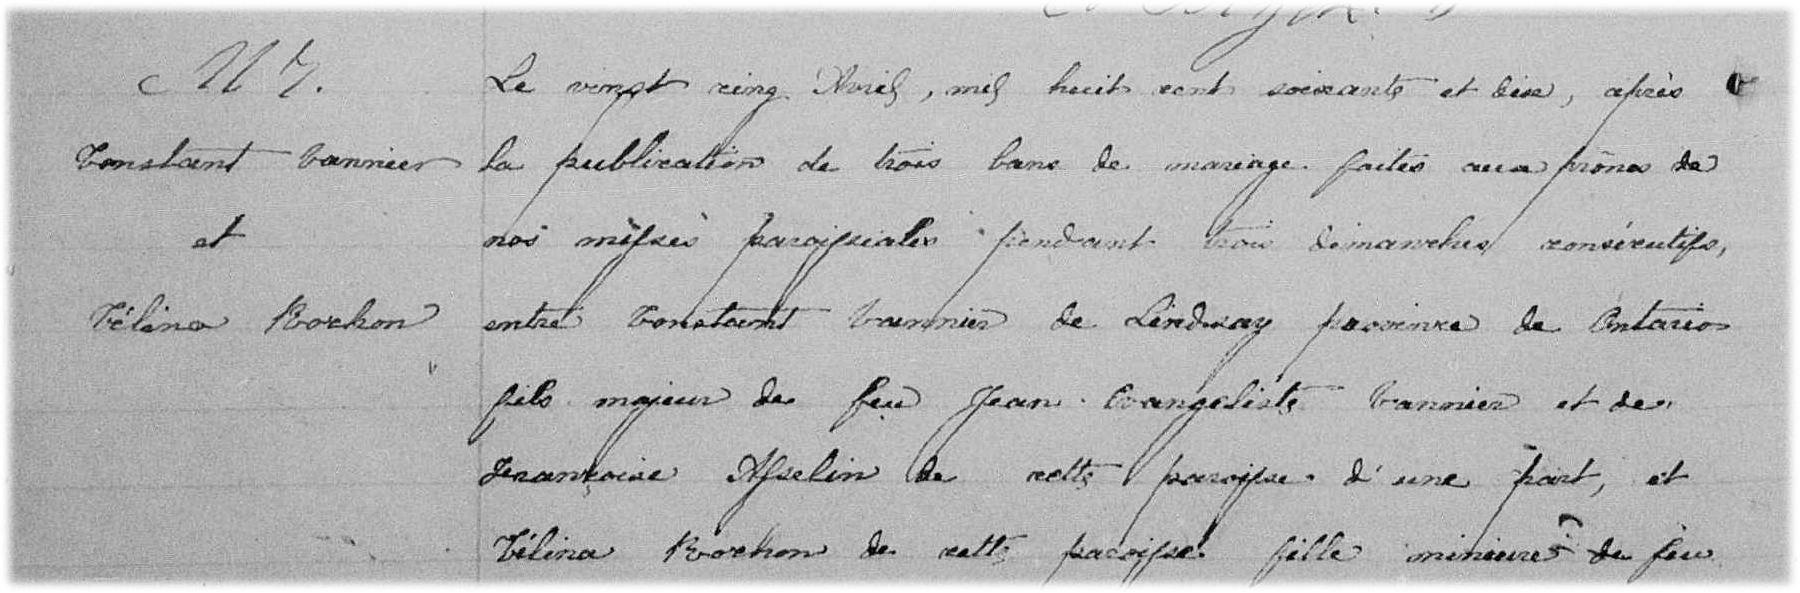 M 7.
Constant Vannier
et
Célina Rochon
Le vingt cinq Avril, mil huit cent soixante et dix, après
la publication de trois bans de mariage faites aux prônes de
nos messes paroissiales pendant trois dimanches consécutifs,
entre Constant Vannier de Lindsay province de Ontario
fils majeur de feu Jean Evangeliste Vannier et de
Françoise Asselin de cette paroisse d'une part, et
Célina Rochon de cette paroisse fille mineure de feu